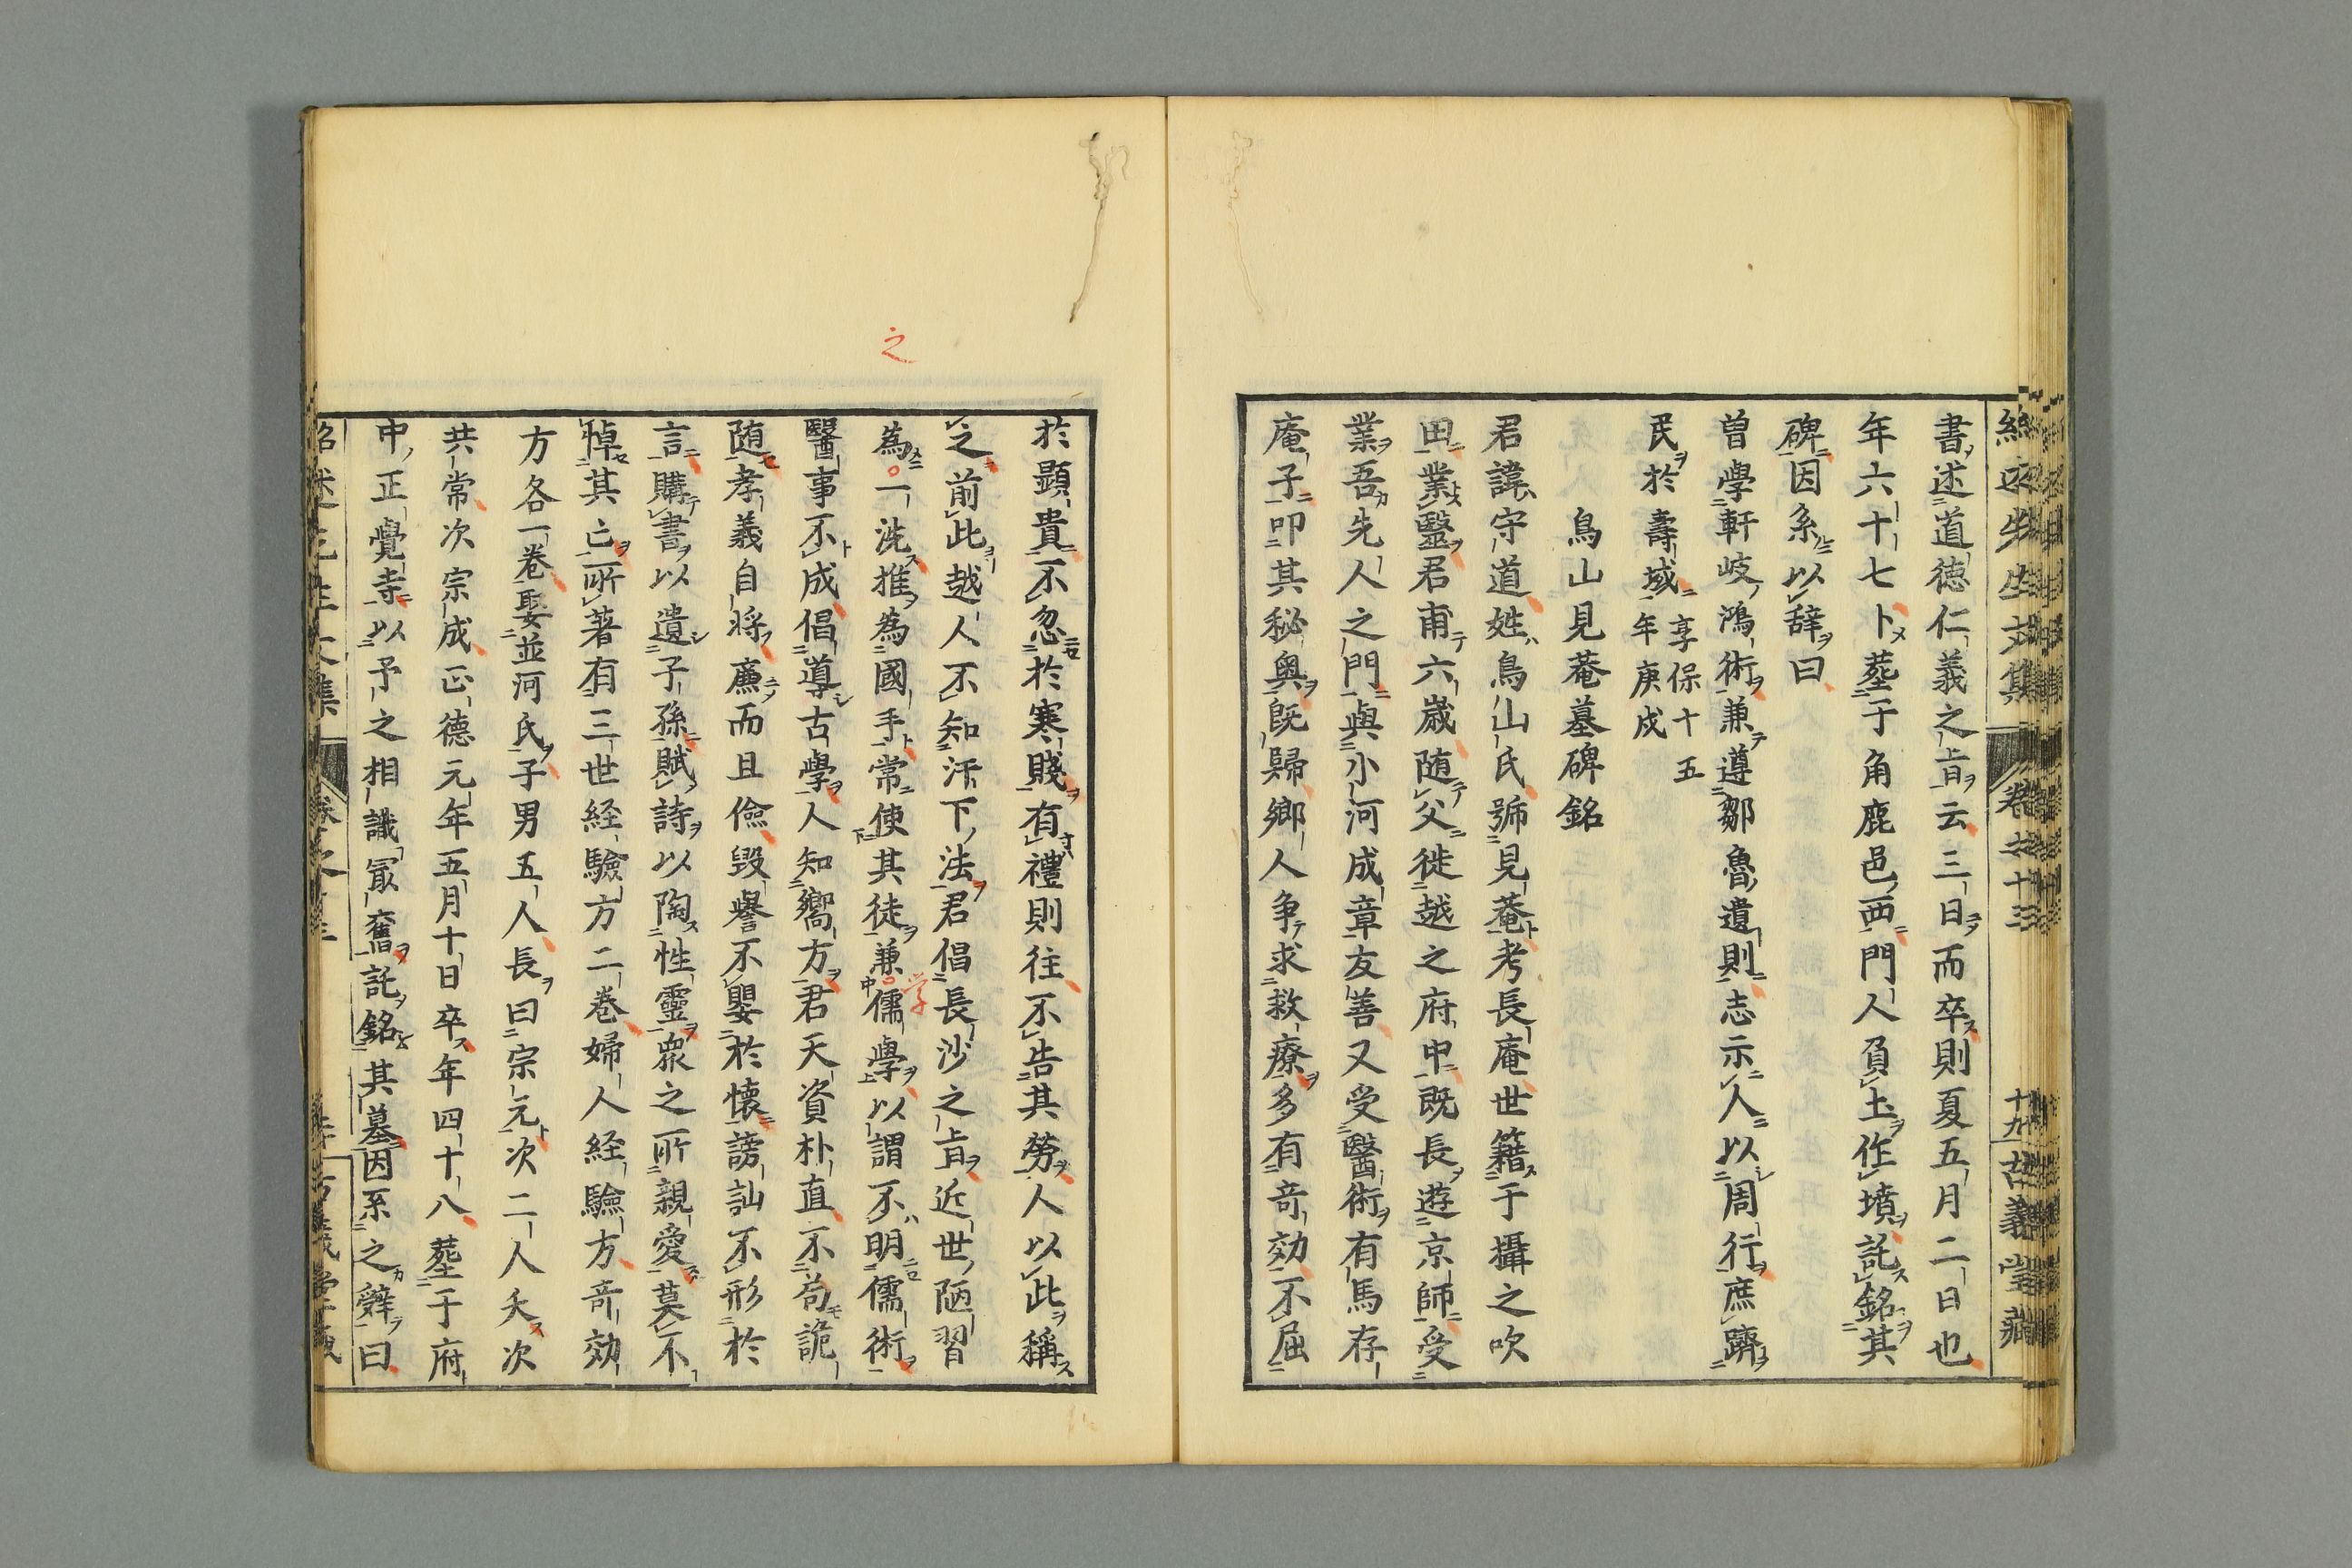 紹述先生文集 卷之十三 十九 古義堂藏
書述道德仁義之旨云三日而卒則夏五月二日也
年六十七卜葬于角鹿邑西門人負土作墳託銘其
碑因系以辞曰
曽學軒岐鴻術兼遵鄒魯遺則志示人以周行庶躋
民於壽域享保十五
年庚戌
鳥山見菴墓碑銘
君諱守道姓鳥山氏號見菴考長庵世籍于攝之吹
田業毉君甫六歳随父徙越之府中既長遊京師受
業吾先人之門與小河成章友善又受醫術有馬存
庵子叩其秘奥既歸郷人争求救療多有竒効不屈
於顕貴不忽於寒賤有禮則往不告其勞人以此稱
之前此越人不知汗下法君倡長沙之旨近世陋習
為一洗推為國手常使其徒兼儒學以謂不明儒術
之
学
醫事不成倡導古學人知嚮方君天資朴直不苟詭
随孝義自将廉而且儉毀譽不嬰於懐謗訕不形於
言購書以遺子孫賦詩以陶性靈衆之所親愛莫不
悼其亡所著有三世経驗方二巻婦人経驗方竒効
方各一巻娶並河氏子男五人長曰宗元次二人夭次
共常次宗成正德元年五月十日卒年四十八葬于府
中正覺寺以予之相識冣舊託銘其墓因系之辤曰
紹述先生文集 卷之十三 古義堂藏